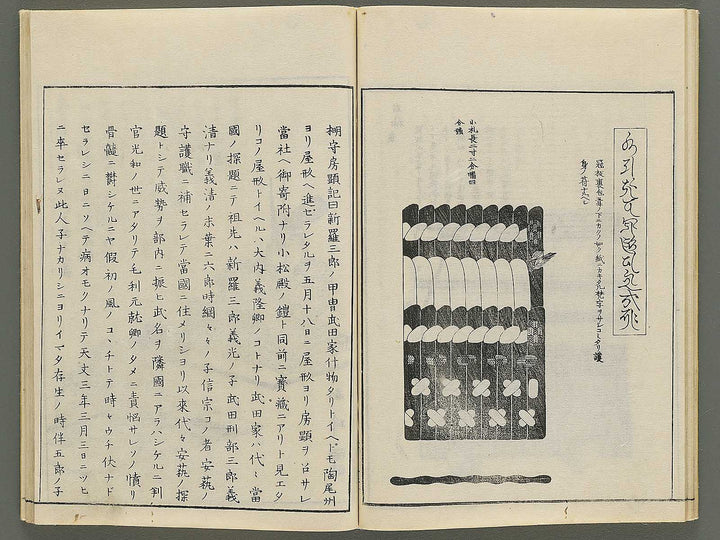 冠板裏包革ノ下ニカクノ如ク紙ニカキタル梵字ヲサシコミタリ護
身ノ符ナルベシ
小札長二寸二分幅四
分強
棚守房顕記曰新羅三郎ノ甲冑武田家什物タリトイヘドモ陶尾州
ヨリ屋形ヘ進ゼラレタルヲ五月十八日ニ屋形ヨリ房顕ヲ以召サレ
當社ヘ御寄附ナリ小松殿ノ鎧ト同前ニ寶藏ニアリト見エタ
リコノ屋形トイヘルハ大内義隆卿ノコトナリ武田家ハ代々當
國ノ探題ニテ祖先ハ新羅三郎義光ノ子武田刑部三郎義
清ナリ義清ノ末葉ニ六郎時綱々々ノ子信宗コノ者安藝ノ
守護職ニ補セラレテ當國ニ住メリシヨリ以來代々安藝ノ探
題トシテ威勢ヲ部内ニ振ヒ武名ヲ隣國ニアラハシケルニ判
官光和ノ世ニアタリテ毛利元就卿ノタメニ責悩サレソノ憤リ
骨髓ニ欝シケルニヤ假初ノ風ノコヽチトテ時々ウチ伏ナド
セラレシニヨニソヘテ病オモクナリテ天文三年三月三日ニツヒ
ニ卒セラレヌ此人子ナカリシニヨリイマタ存生ノ時伴五郎ノ子